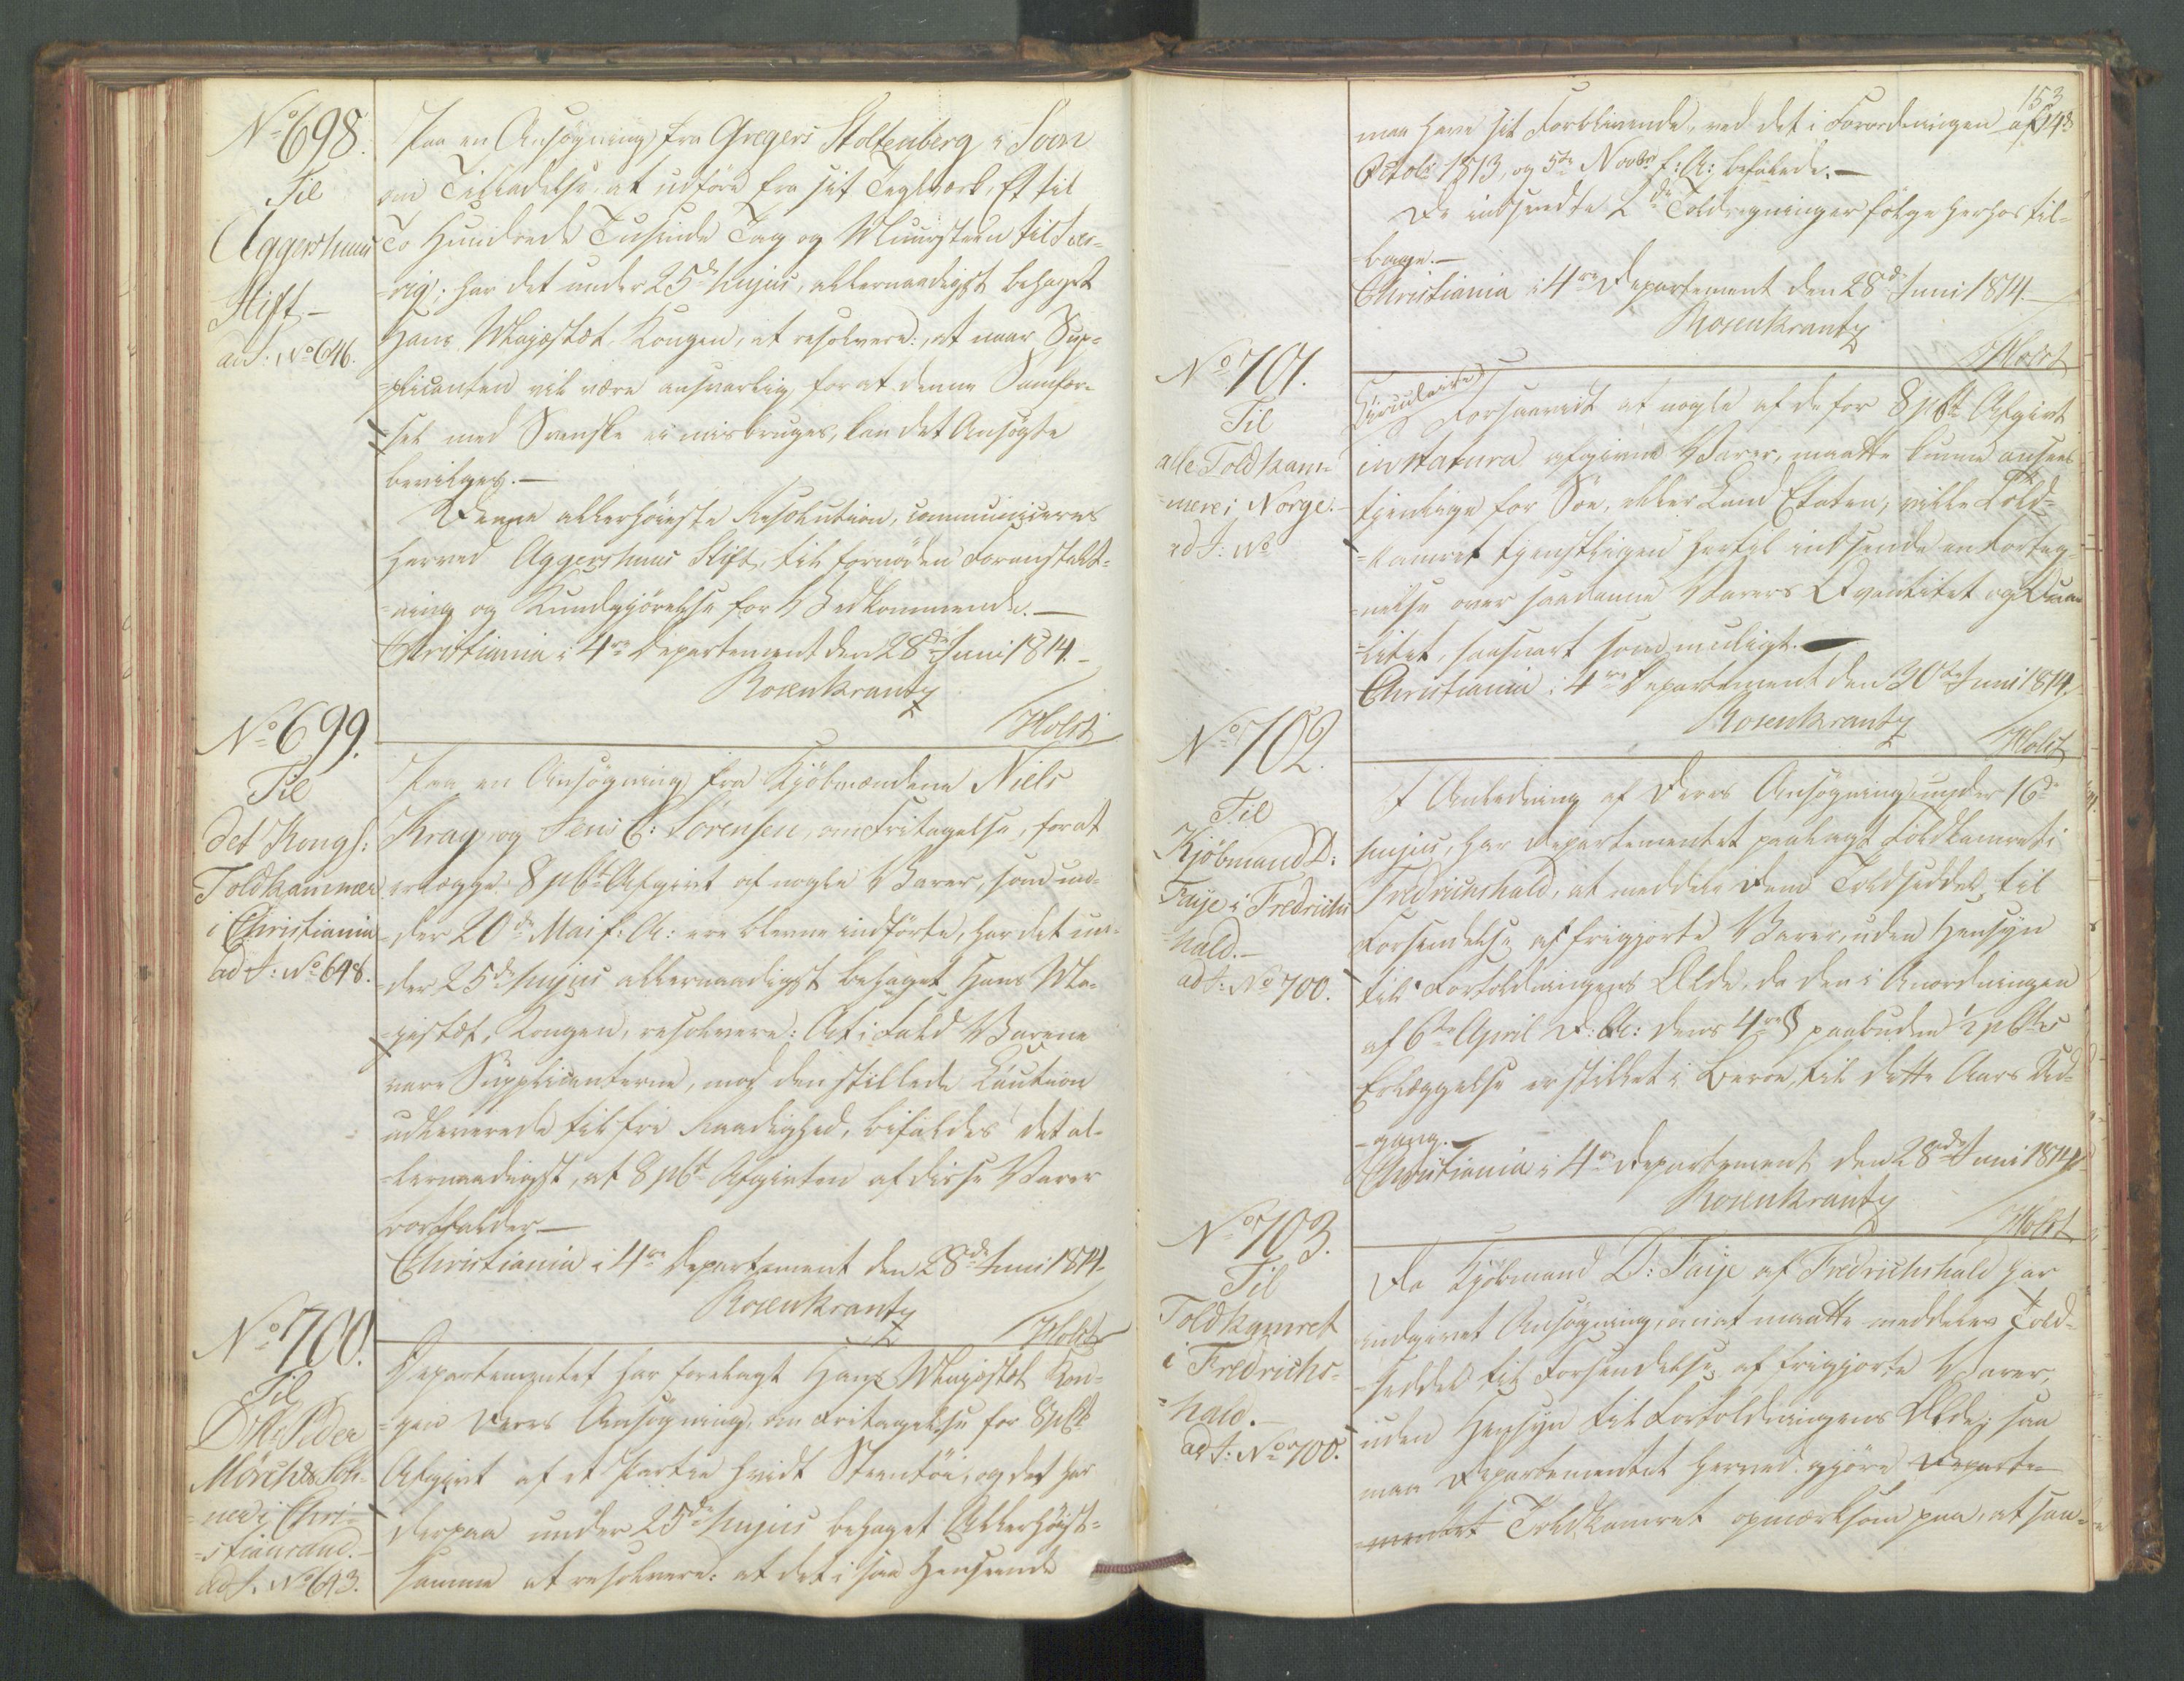 No 698.
Til
Aggershuus
Stift.-
ad J: No 646.
Paa en Ansøgning fra Gregers Stoltenberg i Soon
om Tilladelse, at udføre fra sit Teglværk, Et til
To Hundrede Tusinde Tag og Muursteen til Sver-
-rig; har det under 25de hujus, allernaadigst behaget
Hans Majestæt Kongen, at resolvere: at naar Sup-
-plicanten vil være ansvarlig for at denne Samfær-
sel med Svenske ei misbruges, kan det Ansøgte
bevilges.-
Denne allerhøieste Resolution, communiceres
herved Aggershuus Stift, til fornøden Foranstalt-
-ning og Kundgjørelse for Vedkommende.-
Christiania i 4de Departement den 28de Juni 1814.-
Rosenkrantz
/Holst
No 699.
Til
det Kongl:
Toldkammer
i Christiania
ad J: No 648.
Paa en Ansøgning fra Kjøbmændene Niels
Krag og Jens C: Sørensen, om Fritagelse, for at
erlægge 8 pCt Afgivt af nogle Varer, som un-
-der 20de Mai f: A: ere blevne indførte, har det un-
-der 25de hujus allernaadigst behaget Hans Ma-
-jestæt, Kongen, resolvere: At i Fald Varene
vare Supplicanterne, mod den stillede Caution
udleverede til fri Raadighed, bifaldes det al-
-lernaadigst, at 8 pCt Afgivten af disse Varer
bortfalder-
Christiania i 4de Departement den 28de Juni 1814.
Rosenkrantz
/Holst
No 700.
Til
DHr. Peder
Mørch & Søn-
-ner i Chri-
-stiansand.-
ad J. No 643.
Departementet har forelagt Hans Majestæt Kon-
-gen Deres Ansøgning, om Fritagelse for 8 pCt
Afgivt af et Partie hvidt Steentøi, og det har
derpaa under 25de hujus behaget Allerhøist-
samme at resolvere: at det i saa Henseende
153
maa have sit Forblivende, ved det i Forordningen af 14de
Octob: 1813, og 5te Novbr f: A: befalede.-
De indsendte 2de Toldregninger følge herhos til-
-bage.-
Christiania i 4de Departement den 28de Juni 1814.-
Rosenkrantz
/Holst
No 701.
Til
alle Toldkam-
-mere i Norge.-
ad J: No
Circulaire
Forsaavidt at nogle af de for 8 pCt Afgivt
in natura afgivne Varer, maatte kunne ansees
tjenlige for Søe, eller Land Etaten, ville Told-
-kamret tjenstligen hertil indsende en Forteg-
-nelse over saadanne Varers Qvantitet og Qua-
-litet, saasnart som muligt.-
Christiania i 4de Departement den 30te Juni 1814.
Rosenkrantz
/Holst
No 702.
Til
Kjøbmand D:
Faije i Fredrichs
-hald.-
ad J: No 700.
I Anledning af Deres Ansøgning under 16de
hujus, har Departementet paalagt Toldkamret i
Fredrichshald, at meddele Dem Toldseddel til
Forsendelse af frigjorte Varer, uden Hensyn
til Fortoldningens Ælde, da den i Anordningen
af 6te April d: A: dens 4de § paabudne ½ pCts
Erlæggelse er stillet i Beroe, til dette Aars Ud-
-gang.-
Christiania i 4de Departement den 28de Juni 1814.
Rosenkrantz
/Holst
No 703.
Til
Toldkamret
i Fredrichs-
-hald.-
ad J: No 700.
Da Kjøbmand D: Faije af Fredrichshald har
indgivet Ansøgning, om at maatte meddeles Told-
-seddel til Forsendelse af frigjorte Varer,
uden Hensyn til Fortoldningens Ælde; saa
maa Departementet herved gjøre Departe-
-mentet Toldkamret opmærksom paa, at saa-